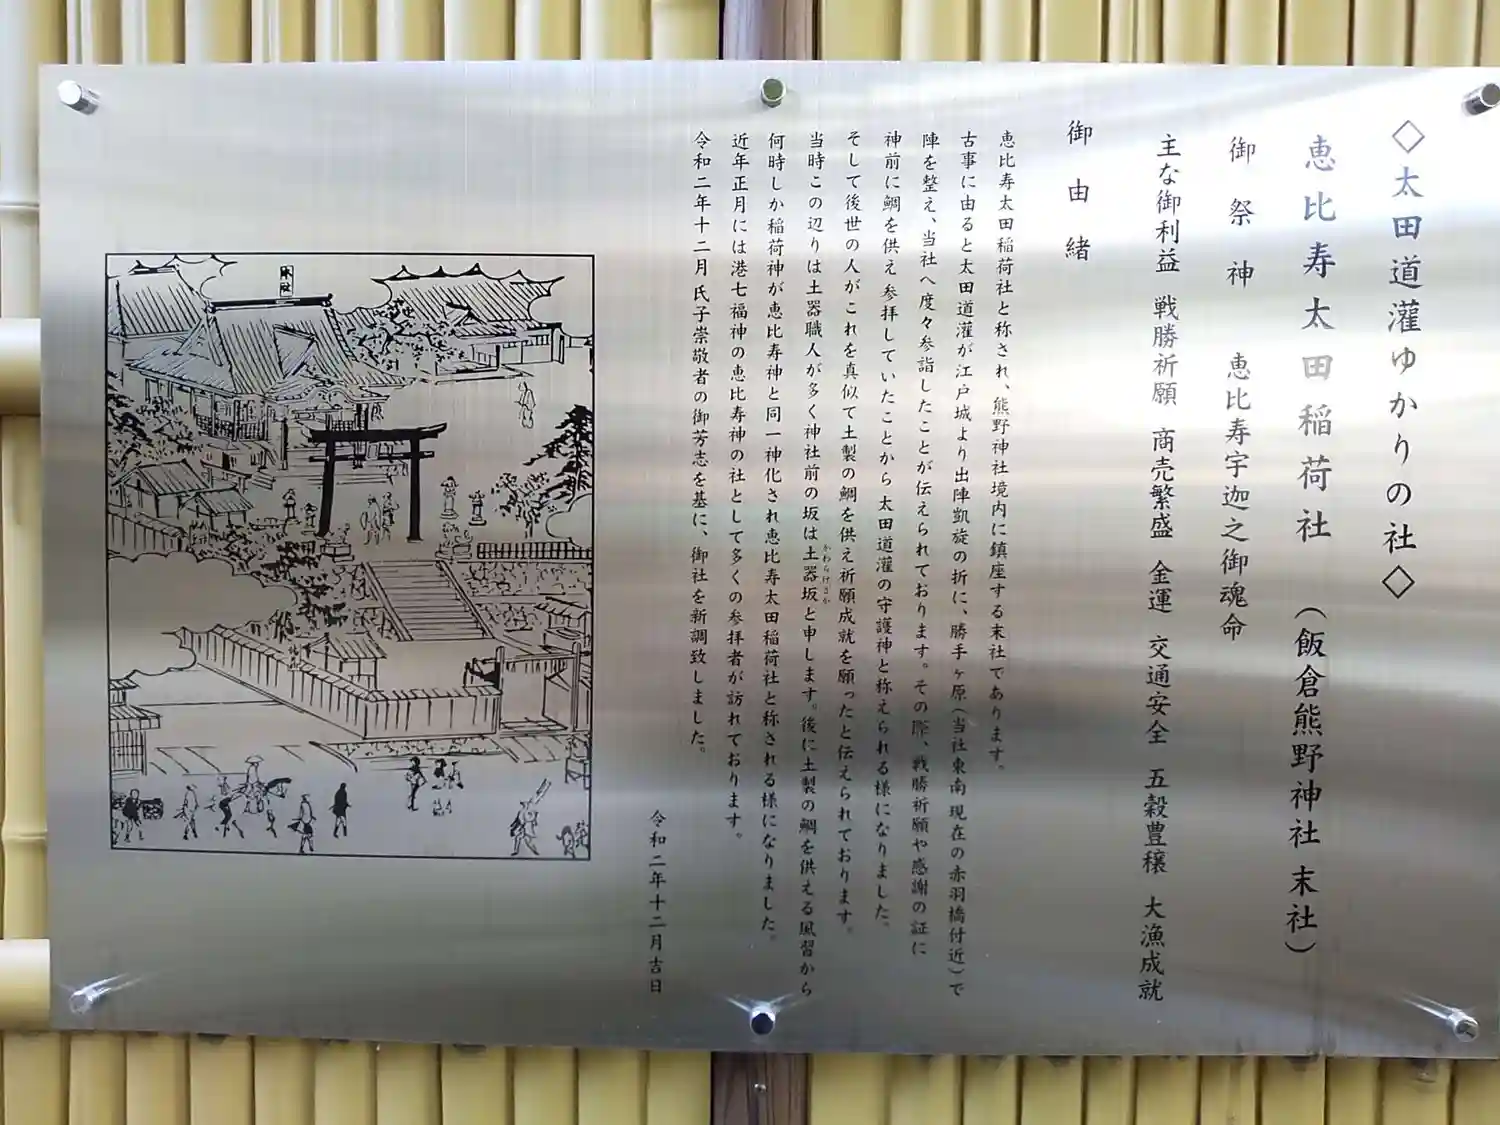 ◇太田道灌ゆかりの社◇
恵比寿太田稲荷社 (飯倉熊野神社 末社)
御祭神 恵比寿宇迦之御魂命
主な御利益 戦勝祈願 商売繁盛 金運 交通安全 五穀豊穣 大漁成就
御由緒
恵比寿太田稲荷社と称され、熊野神社境内に鎮座する末社であります。
古事に由ると太田道灌が江戸城より出陣凱旋の折に、勝手ヶ原(当社東南 現在の赤羽橋付近)で
陣を整え、当社へ度々参詣したことが伝えられております。その際、戦勝祈願や感謝の証に
神前に鯛を供え参拝していたことから太田道灌の守護神と称えられる様になりました。
そして後世の人がこれを真似て土製の鯛を供え祈願成就を願ったと伝えられております。
当時この辺りは土器職人が多く神社前の坂は土器坂と申します。後に土製の鯛を供える風習から
かわらけざか
何時しか稲荷神が恵比寿神と同一神化され恵比寿太田稲荷社と称される様になりました。
近年正月には港七福神の恵比寿神の社として多くの参拝者が訪れております。
令和二年十二月 氏子崇敬者の御芳志を基に、御社を新調致しました。
令和二年十二月吉日
本社